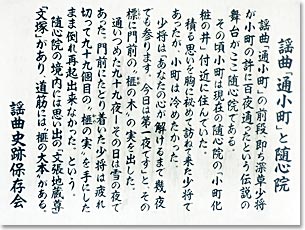 謡曲「通小町」と随心院
謡曲「通小町」の前段、即ち深草少将
が小町の許に百夜通ったという伝説の
舞台がここ随心院である。
その頃小町は現在の随心院の「小町化
粧の井」付近に住んでいた。
積る思いを胸に秘めて訪ねて来た少将で
あったが、小町は冷めたかった。
少将は「あなたの心が解けるまで幾夜
でも参ります。今日は第一夜です」と、その
標に門前の「榧の木」の実を出した。
通いつめた九十九夜―その日は雪の夜で
あった。門前にたどり着いた少将は疲れ
切って九十九個目の「榧の実」を手にした
まま倒れ再起出来なかった。という。
随心院の境内には思い出の「文張地蔵尊」
「文塚」があり、道筋には「榧の大木」がある。
謡曲史跡保存会